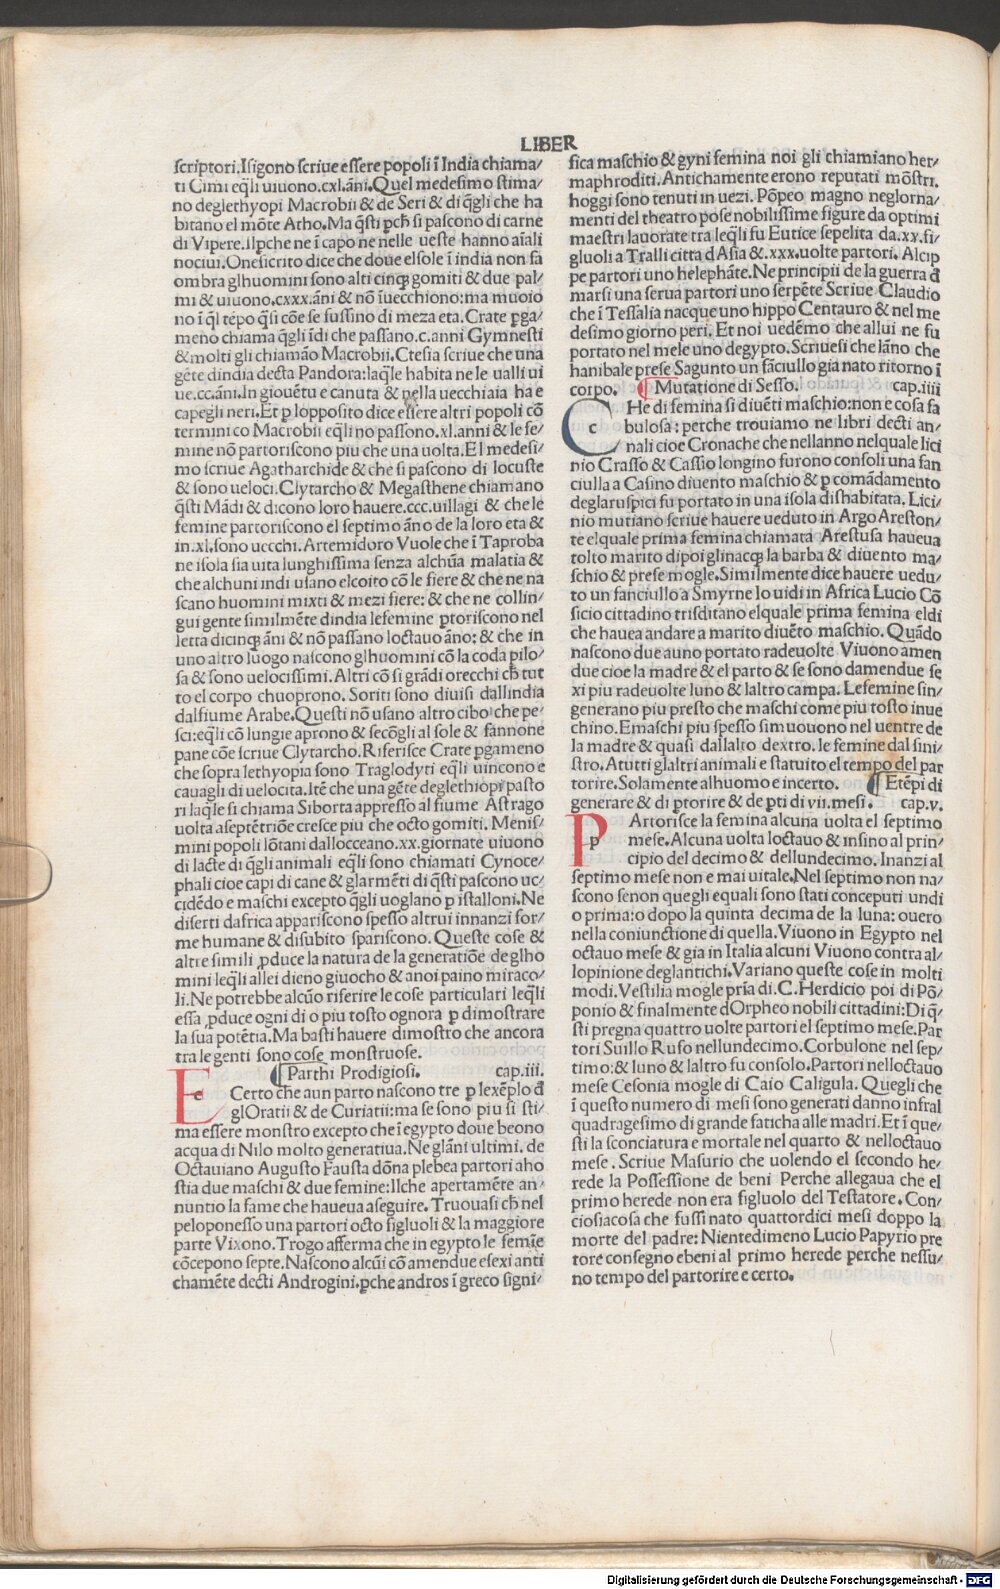 LIBER
scriptori.Isigono scriue essere popoli ĩ India chiama/
ti Cimi eq̃li uiuono.cxl.ãni.Quel medesimo stima/
no deglethyopi Macrobii & de Seri & di q̃gli che ha
bitano el mõte Atho.Ma q̃sti pch̃ si pascono di carne
di Vipere.ilpche ne i capo ne nelle ueste hanno aĩali
nociui.Onesicrito dice che doue elsole ĩ india non fa
ombra glhuomini sono alti cinq̃ gomiti & due pal/
mi & uiuono.cxxx.ãni & nõ ĩuecchiono:ma muoio
no ĩ q̃l tẽpo q̃si cõe se fussino di meza eta.Crate pga/
meno chiama q̃gli ĩdi che passano.c.anni Gymnesti
& molti gli chiamão Macrobii.Ctesia scriue che una
gẽte dindia decta Pandora:laq̃le habita ne le ualli ui
ue.cc.ãni.In giouẽtu e canuta & nella uecchiaia ha e
capegli neri.Et p lopposito dice essere altri popoli cõ
termini co Macrobii eq̃li no passono.xl.anni & le fe/
mine nõ partoriscono piu che una uolta.El medesi/
mo scriue Agatharchide & che si pascono di locuste
& sono ueloci.Clytarcho & Megasthene chiamano
q̃sti Mãdi & dicono loro hauere.ccc.uillagi & che le
femine partoriscono el septimo ãno de la loro eta &
in.xl.sono uecchi.Artemidoro Vuole che ĩ Taproba
ne isola sia uita lunghissima senza alchũa malatia &
che alchuni indi usano elcoito cõ le fiere & che ne na
scano huomini mixti & mezi fiere: & che ne collin/
gui gente similmẽte dindia lefemine ptoriscono nel
letta dicinq̃ ãni & nõ passano loctauo ãno: & che in
uno altro luogo nascono glhuomini cõ la coda pilo/
sa & sono uelocissimi.Altri cõ si grãdi orecchi ch̃ tut
to el corpo chuoprono.Soriti sono diuisi dallindia
dalfiume Arabe.Questi nõ usano altro cibo che pe/
sci:eq̃li cõ lungie aprono & secõgli al sole & fannone
pane cõe scriue Clytarcho.Riferisce Crate pgameno
che sopra lethyopia sono Traglodyti eq̃li uincono e
cauagli di uelocita.Itẽ che una gẽte deglethiopi pasto
ri laq̃le si chiama Siborta appresso al fiume Astrago
uolta aseptẽtriõe cresce piu che octo gomiti. Menis/
mini popoli lõtani dallocceano.xx.giornate uiuono
di lacte di q̃gli animali eq̃li sono chiamati Cynoce/
phali cioe capi di cane & glarmẽti di q̃sti pascono uc/
cidẽdo e maschi excepto q̃gli uoglano p istalloni.Ne
diserti dafrica appariscono spesso altrui innanzi for/
me humane & disubito spariscono. Queste cose &
altre simili pduce la natura de la generatiõe de glho
mini leq̃li allei dieno giuocho & anoi paino miraco/
li.Ne potrebbe alcũo riferire le cose particulari leq̃li
essa pduce ogni di o piu tosto ognora p dimostrare
la sua potẽtia.Ma basti hauere dimostro che ancora
tra le genti sono cose monstruose.
¶Parthi Prodigiosi. cap.iii.
E Certo che aun parto nascono tre p lexẽplo đ
glOratii & de Curiatii:ma se sono piu si sti/
ma essere monstro excepto che ĩ egypto doue beono
acqua di Nilo molto generatiua.Ne glãni ultimi. de
Octauiano Augusto Fausta dõna plebea partori aho
stia due maschi & due femine:Ilche apertamẽte an/
nuntio la fame che haueua aseguire. Truouasi ch̃ nel
peloponesso una partori octo figluoli & la maggiore
parte Vixono.Trogo afferma che in egypto le semĩe
cõcepono septe.Nascono alcũi cõ amendue esexi anti
chamẽte decti Androgini.pche andros ĩ greco signi/
fica maschio & gyni femina noi gli chiamiano her/
maphroditi.Antichamente erono reputati mõstri.
hoggi sono tenuti in uezi. Põpeo magno neglorna/
menti del theatro pose nobilissime figure da optimi
maestri lauorate tra leq̃li fu Eutice sepelita da.xx.fi/
gluoli a Tralli citta dAsia & .xxx.uolte partori. Alcip
pe partori uno helephãte.Ne principii de la guerra đ
marsi una serua partori uno serpẽte Scriue Claudio
che ĩ Tessalia nacque uno hippo Centauro & nel me
desimo giorno peri. Et noi uedẽmo che allui ne fu
portato nel mele uno degypto.Scriuesi che lãno che
hanibale prese Sagunto un fãciullo gia nato ritorno ĩ
corpo. ¶Mutatione di Sesso. cap.iiii
C He di femina si diuẽti maschio:non e cosa fa
bulosa: perche trouiamo ne libri decti an/
nali cioe Cronache che nellanno nelquale lici
nio Crasso & Cassio longino furono consoli una fan
ciulla a Casino diuento maschio & p comãdamento
deglaruspici fu portato in una isola dishabitata. Lici/
nio mutiano scriue hauere ueduto in Argo Areston/
te elquale prima femina chiamata Arestusa haueua
tolto marito dipoi glinacq̃ la barba & diuento ma/
schio & prese mogle.Similmente dice hauere uedu/
to un fanciullo a Smyrne Io uidi in Africa Lucio Cõ
sicio cittadino trisditano elquale prima femina eldi
che hauea andare a marito diuẽto maschio. Quãdo
nascono due auno portato radeuolte Viuono amen
due cioe la madre & el parto & se sono damendue se
xi piu radeuolte luno & laltro campa. Lefemine sin/
generano piu presto che maschi come piu tosto inue
chino.Emaschi piu spesso simuouono nel uentre de
la madre & quasi dallalto dextro. le femine dal sini/
stro.Atutti glaltri animali e statuito el tempo del par
torire.Solamente alhuomo e incerto. ¶Etẽpi di
generare & di ptorire & de pti di vii.mesi. cap.v.
P Artorisce la femina alcuna uolta el septimo
mese.Alcuna uolta loctauo & insino al prin/
cipio del decimo & dellundecimo.Inanzi al
septimo mese non e mai uitale.Nel septimo non na/
scono senon quegli equali sono stati conceputi undi
o prima:o dopo la quinta decima de la luna: ouero
nella coniunctione di quella.Viuono in Egypto nel
octauo mese & gia in Italia alcuni Viuono contra al/
lopinione deglantichi.Variano queste cose in molti
modi.Vestilia mogle pria di.C.Herdicio poi di Põ/
ponio & finalmente dOrpheo nobili cittadini:Di q̃/
sti pregna quattro uolte partori el septimo mese.Par
tori Suillo Rufo nellundecimo.Corbulone nel sep/
timo:& luno & laltro fu consolo.Partori nelloctauo
mese Cesonia mogle di Caio Caligula. Quegli che
ĩ questo numero di mesi sono generati danno infral
quadragesimo di grande faticha alle madri.Et ĩ que/
sti la sconciatura e mortale nel quarto & nelloctauo
mese.Scriue Masurio che uolendo el secondo he/
rede la Possessione de beni Perche allegaua che el
primo herede non era figluolo del Testatore.Con/
ciosiacosa che fussi nato quattordici mesi doppo la
morte del padre: Nientedimeno Lucio Papyrio pre
tore consegno ebeni al primo herede perche nessu/
no tempo del partorire e certo.
Digitalisierung gefördert durch die Deutsche Forschungsgemeinschaft - DFG